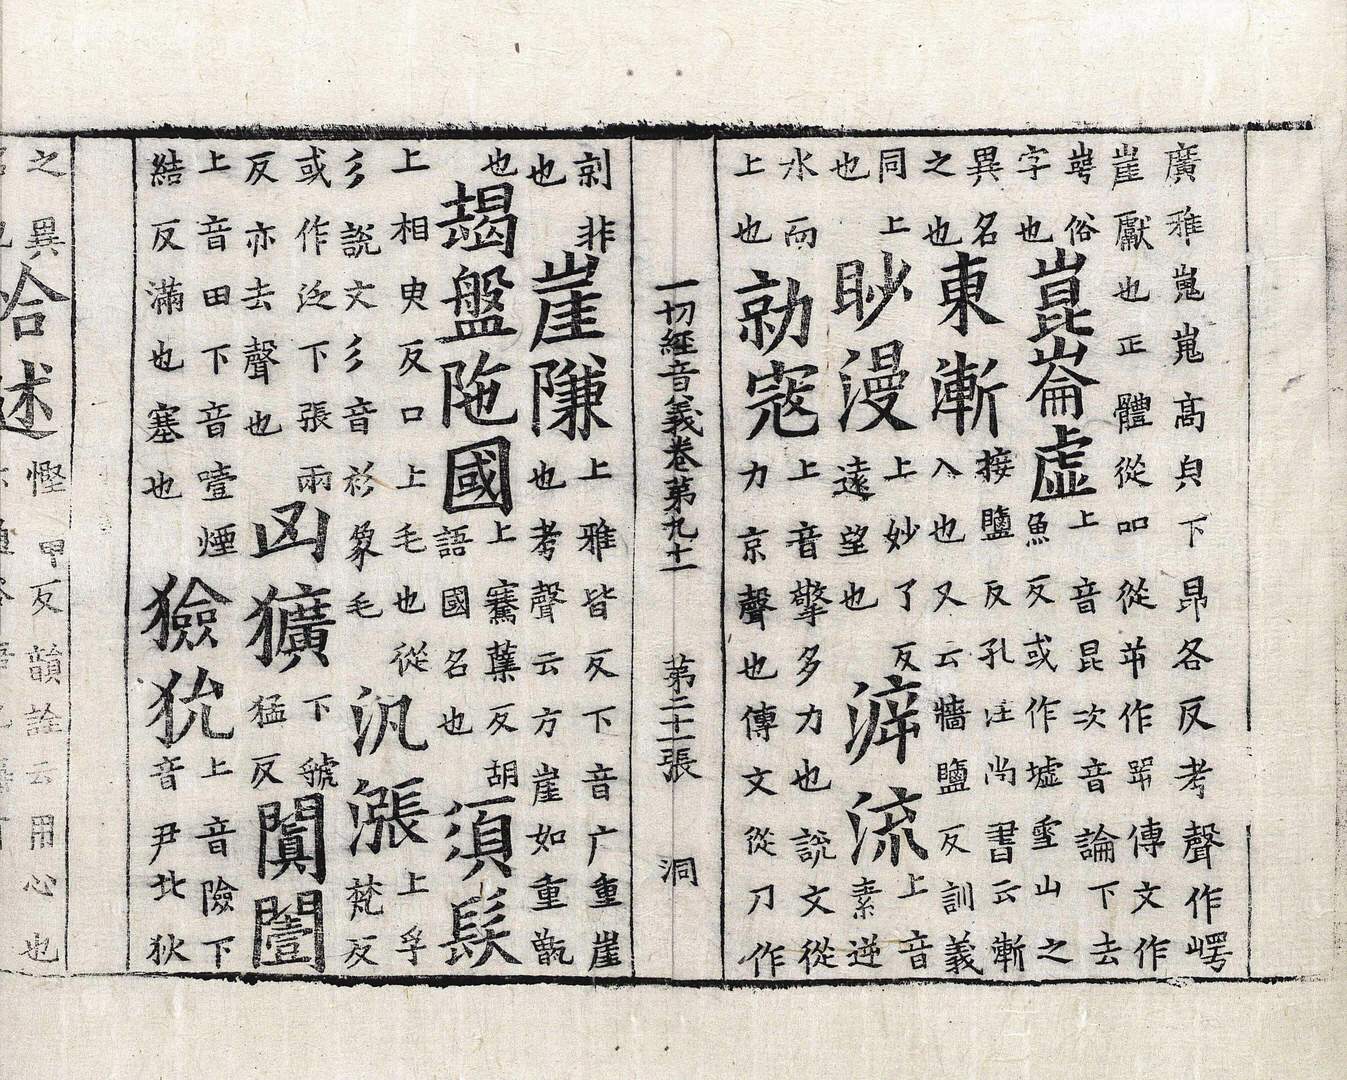 廣雅嵬嵬高皃下昂各反考聲作崿
崖巘也正體從吅從屰作咢傳文作
崿俗
字也
崑崙虛
上音昆次音論下去
魚反或作墟雪山之
異名
之也
東漸
接鹽反孔注尚書云漸
入也又云牆鹽反訓義
同上
也
眇漫
上妙了反
遠望也
澼流
上音
素逆
水而
上也
勍寇
上音擎多力也說文從
力京聲也傳文從刀作
一切經音義卷第九十一 第二十一張 洞
剠非
也
崖隒
上雅皆反下音广重崖
也考聲云方崖如重甑
也
朅盤陁國
上騫蘖反胡
語國名也
須髮
上相臾反口上毛也從
彡說文彡音衫象毛
汎漲
上孚
梵反
或作泛下張兩
反亦去聲也
凶獷
下虢
猛反
闐噎
上音田下音噎煙
結反滿也塞也
獫狁
上音險下
音尹北狄
之異
合述
慳甲反韻詮云用心也